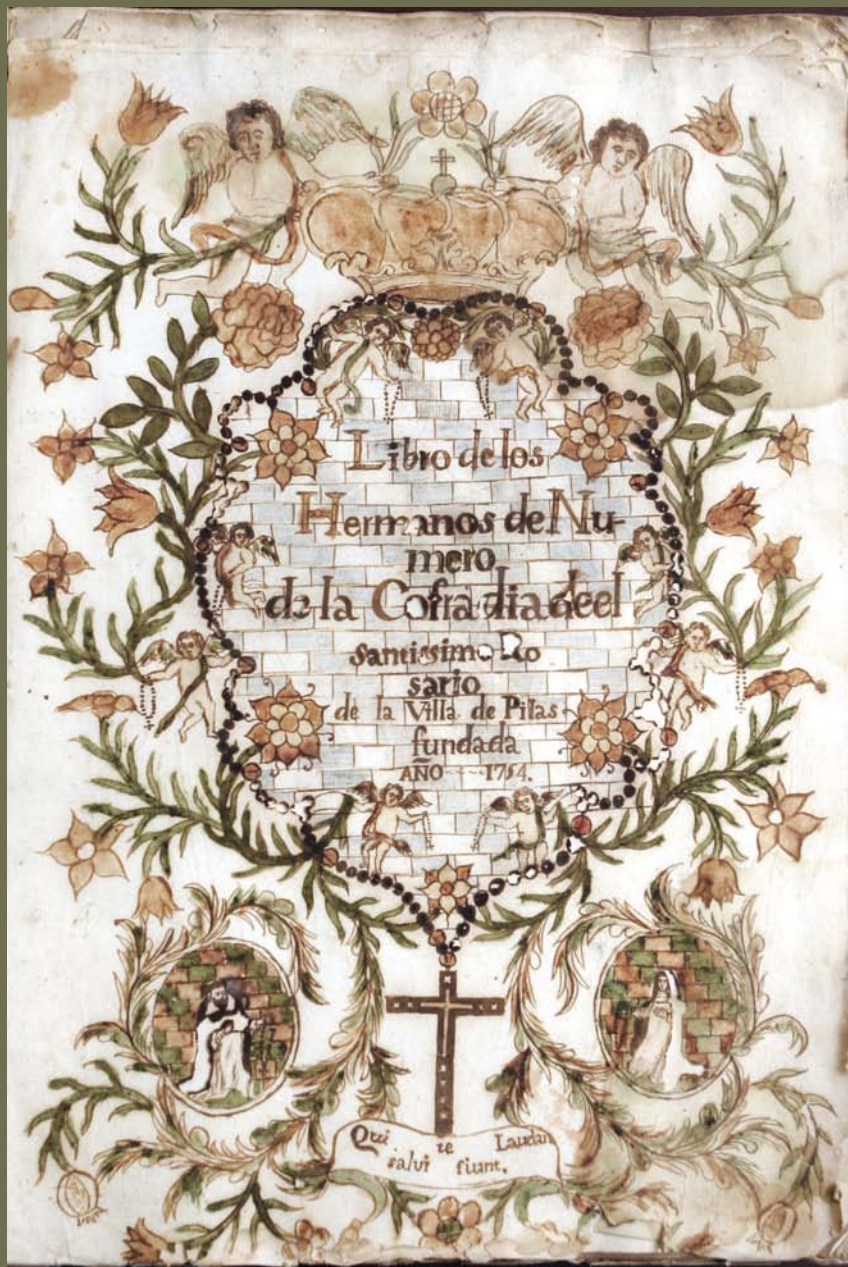 Libro de los
Hermanos de Nu-
mero
de la Cofradia de el
santissimo Ro
sario
de la Villa de Pilas
fundada
AÑO 1754.
Qui te Laudan
salvi fiunt.